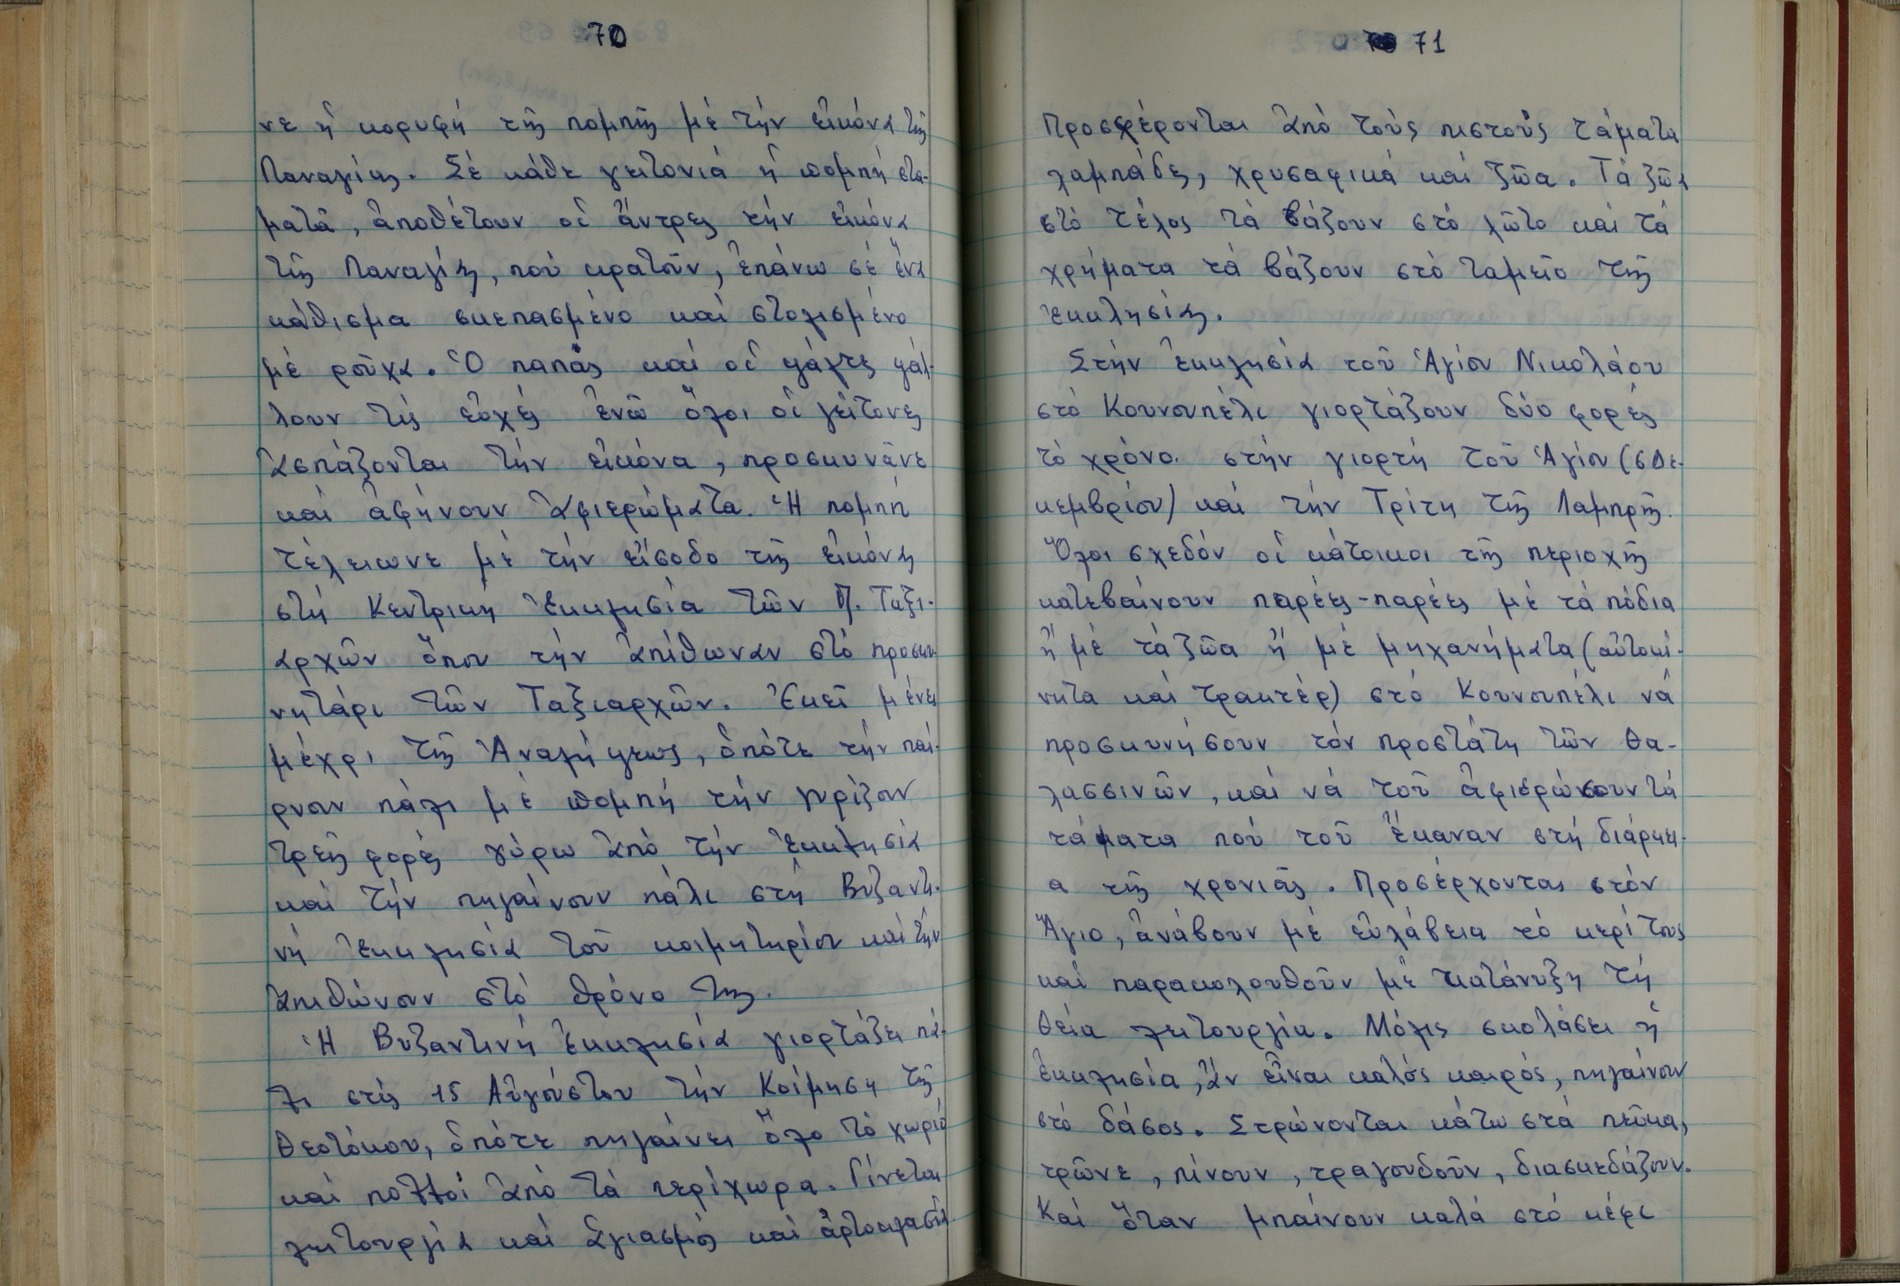 70
νε ἡ κορυφή τῆς πομπῆς μέ τήν εἰκόνα τῆς
Παναγίας. Σέ κάθε γειτονιά ἡ πομπή στα-
ματᾶ, ἀποθέτουν οἱ ἄντρες τήν εἰκόνα
τῆς Παναγίας, πού κρατοῦν, ἐπάνω σέ ἕνα
κάθισμα σκεπασμένο καί στολισμένο
μέ ροῦχα. Ὁ παπᾶς καί οἱ ψάλτες ψάλ-
λουν τίς εὐχές ἐνῶ ὅλοι οἱ γείτονες
ἀσπάζονται τήν εἰκόνα, προσκυνᾶνε
καί ἀφήνουν ἀφιερώματα. Ἡ πομπή
τέλειωνε μέ τήν εἴσοδο τῆς εἰκόνας
στή Κεντρική Ἐκκλησία τῶν Π. Ταξι-
αρχῶν ὅπου τήν ἀπίθωναν στό προσκυ-
νητάρι τῶν Ταξιαρχῶν. Ἐκεῖ μένει
μέχρι τῆς Ἀναλήψεως, ὁπότε τήν παί-
ρνουν πάλι μέ πομπή τήν γυρίζουν
τρεῖς φορές γύρω ἀπό τήν ἐκκλησία
καί τήν πηγαίνουν πάλι στή Βυζαντι-
νή ἐκκλησία τοῦ κοιμητηρίου καί τήν
ἀπιθώνουν στό θρόνο της.
Ἡ Βυζαντινή ἐκκλησία γιορτάζει πά-
λι στίς 15 Αὐγούστου τήν Κοίμηση τῆς
Θεοτόκου, ὁπότε πηγαίνει ὅλο τό χωριό
καί πολλοί ἀπό τά περίχωρα. Γίνεται
λειτουργία καί ἁγιασμός καί ἀρτοκλασία
71
Προσφέρονται ἀπό τούς πιστούς τάματα
λαμπάδες, χρυσαφικά καί ζῶα. Τά ζῶα
στό τέλος τά βάζουν στό λῶτο καί τά
χρήματα τά βάζουν στό ταμεῖο τῆς
ἐκκλησίας.
Στήν ἐκκλησία τοῦ Ἁγίου Νικολάου
στό Κουνουπέλι γιορτάζουν δύο φορές
τό χρόνο. στήν γιορτή τοῦ Ἁγίου (6 Δε-
κεμβρίου) καί τήν Τρίτη τῆς Λαμπρῆς.
Ὅλοι σχεδόν οἱ κάτοικοι τῆς περιοχῆς
κατεβαίνουν παρέες-παρέες μέ τά πόδια
ἤ μέ τά ζῶα ἤ μέ μηχανήματα (αὐτοκί-
νητα καί τρακτέρ) στό Κουνουπέλι νά
προσκυνήσουν τόν προστάτη τῶν θα-
λασσινῶν, καί νά τοῦ ἀφιερώσουν τά
τάματα πού τοῦ ἔκαναν στή διάρκει-
α τῆς χρονιᾶς. Προσέρχονται στόν
Ἅγιο, ἀνάβουν μέ εὐλάβεια τό κερί τους
καί παρακολουθοῦν μέ κατάνυξη τή
θεία λειτουργία. Μόλις σκολάσει ἡ
ἐκκλησία, ἄν εἶναι καλός καιρός, πηγαίνουν
στό δάσος. Στρώνονται κάτω στά πεῦκα,
τρῶνε, πίνουν, τραγουδοῦν, διασκεδάζουν.
Καί ὅταν μπαίνουν καλά στό κέφι